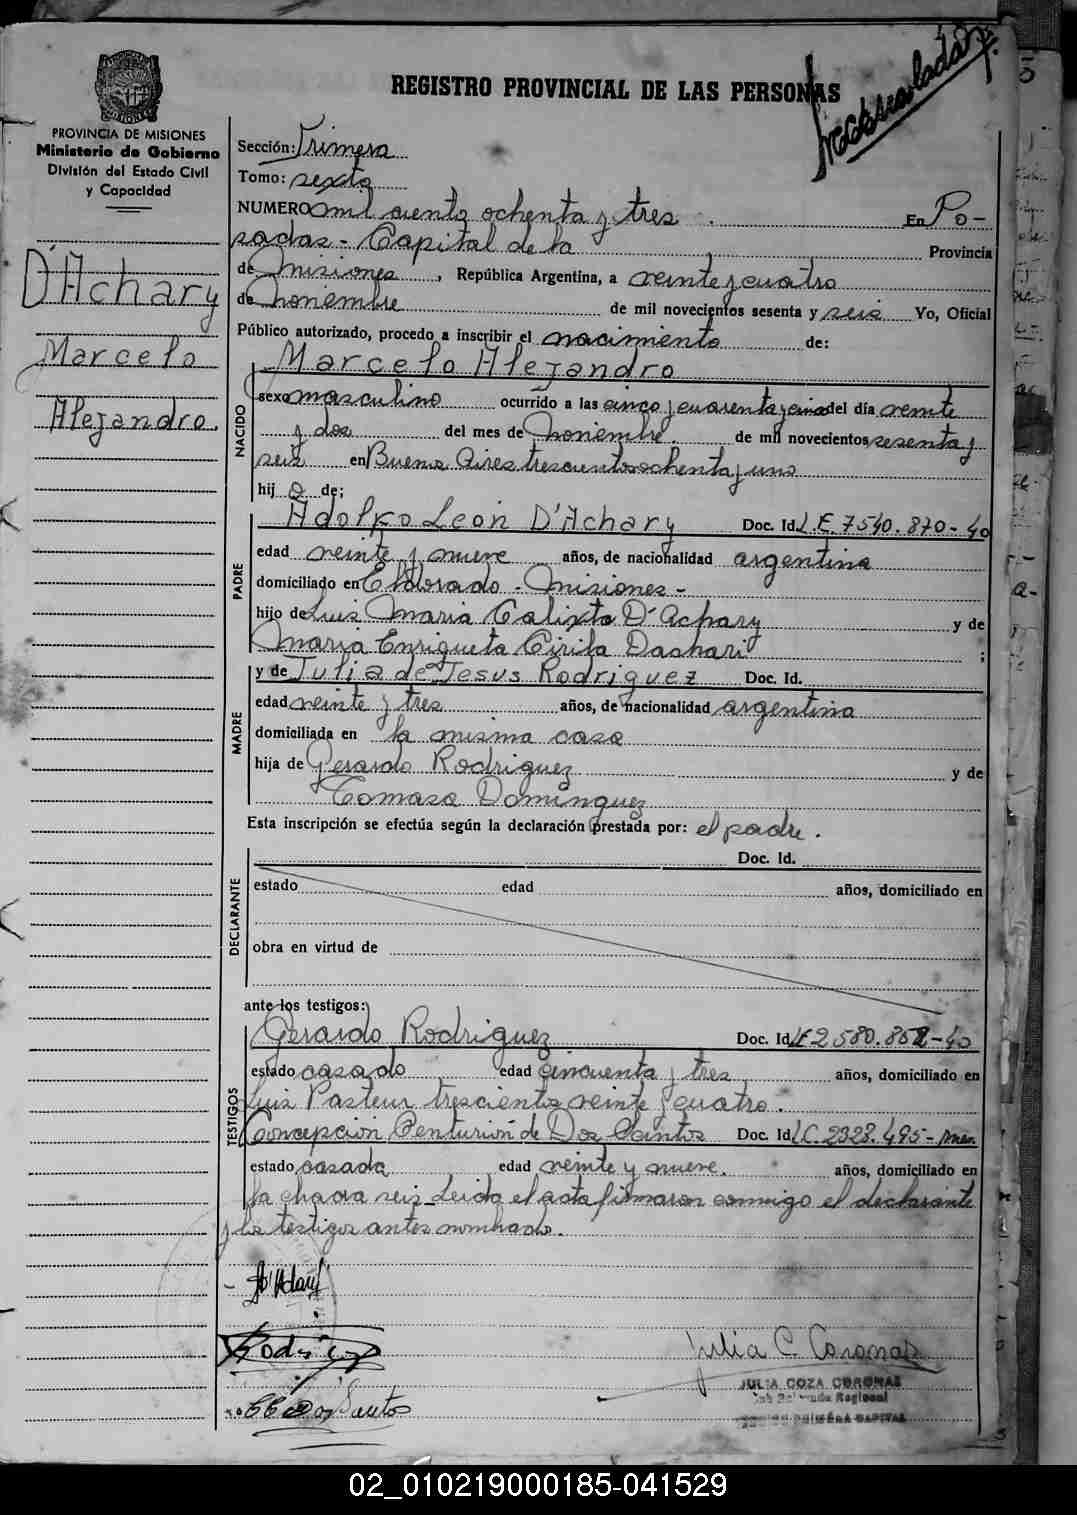 REGISTRO PROVINCIAL DE LAS PERSONAS
PROVINCIA DE MISIONES
Ministerio de Gobierno
División del Estado Civil
y Capacidad
D'Achary
Marcelo
Alejandro.
Sección: Primera
Tomo: sexto
NUMERO mil ciento ochenta y tres. En Po-
sadas - Capital de la Provincia
de Misiones, República Argentina, a veinte y cuatro
de noviembre de mil novecientos sesenta y seis Yo, Oficial
Público autorizado, procedo a inscribir el nacimiento de:
NACIDO
Marcelo Alejandro
sexo masculino ocurrido a las cinco y cuarenta y cinco del día veinte
y dos del mes de Noviembre. de mil novecientos sesenta y
seis en Buenos Aires trescientos ochenta y uno
hijo de;
PADRE
Adolfo Leon D'Achary Doc. Id. L.E. 7540.870-40
edad veinte y nueve años, de nacionalidad argentina
domiciliado en Eldorado - Misiones -
hijo de Luis Maria Calixto D'Achary y de
Maria Enriqueta Cirila Dashari ;
MADRE
y de Julia de Jesus Rodriguez Doc. Id.
edad veinte y tres años, de nacionalidad argentina
domiciliada en la misma casa
hija de Gerardo Rodriguez y de
Tomasa Dominguez
Esta inscripción se efectúa según la declaración prestada por: el padre.
DECLARANTE
Doc. Id.
estado edad años, domiciliado en
obra en virtud de
ante los testigos:
TESTIGOS
Gerardo Rodriguez Doc. Id. LE 2580.852-40
estado casado edad cincuenta y tres años, domiciliado en
Luis Pasteur trescientos veinte y cuatro.
Concepcion Centurión de Dos Santos Doc. Id. L.C. 2323.495-
estado casada edad veinte y nueve. años, domiciliado en
la chacra seis. Leida el acta firmaron conmigo el declarante
y los testigos antes nombrado.
Julia C. Coronas
JULIA COZA CORONAS
02_010219000185-041529